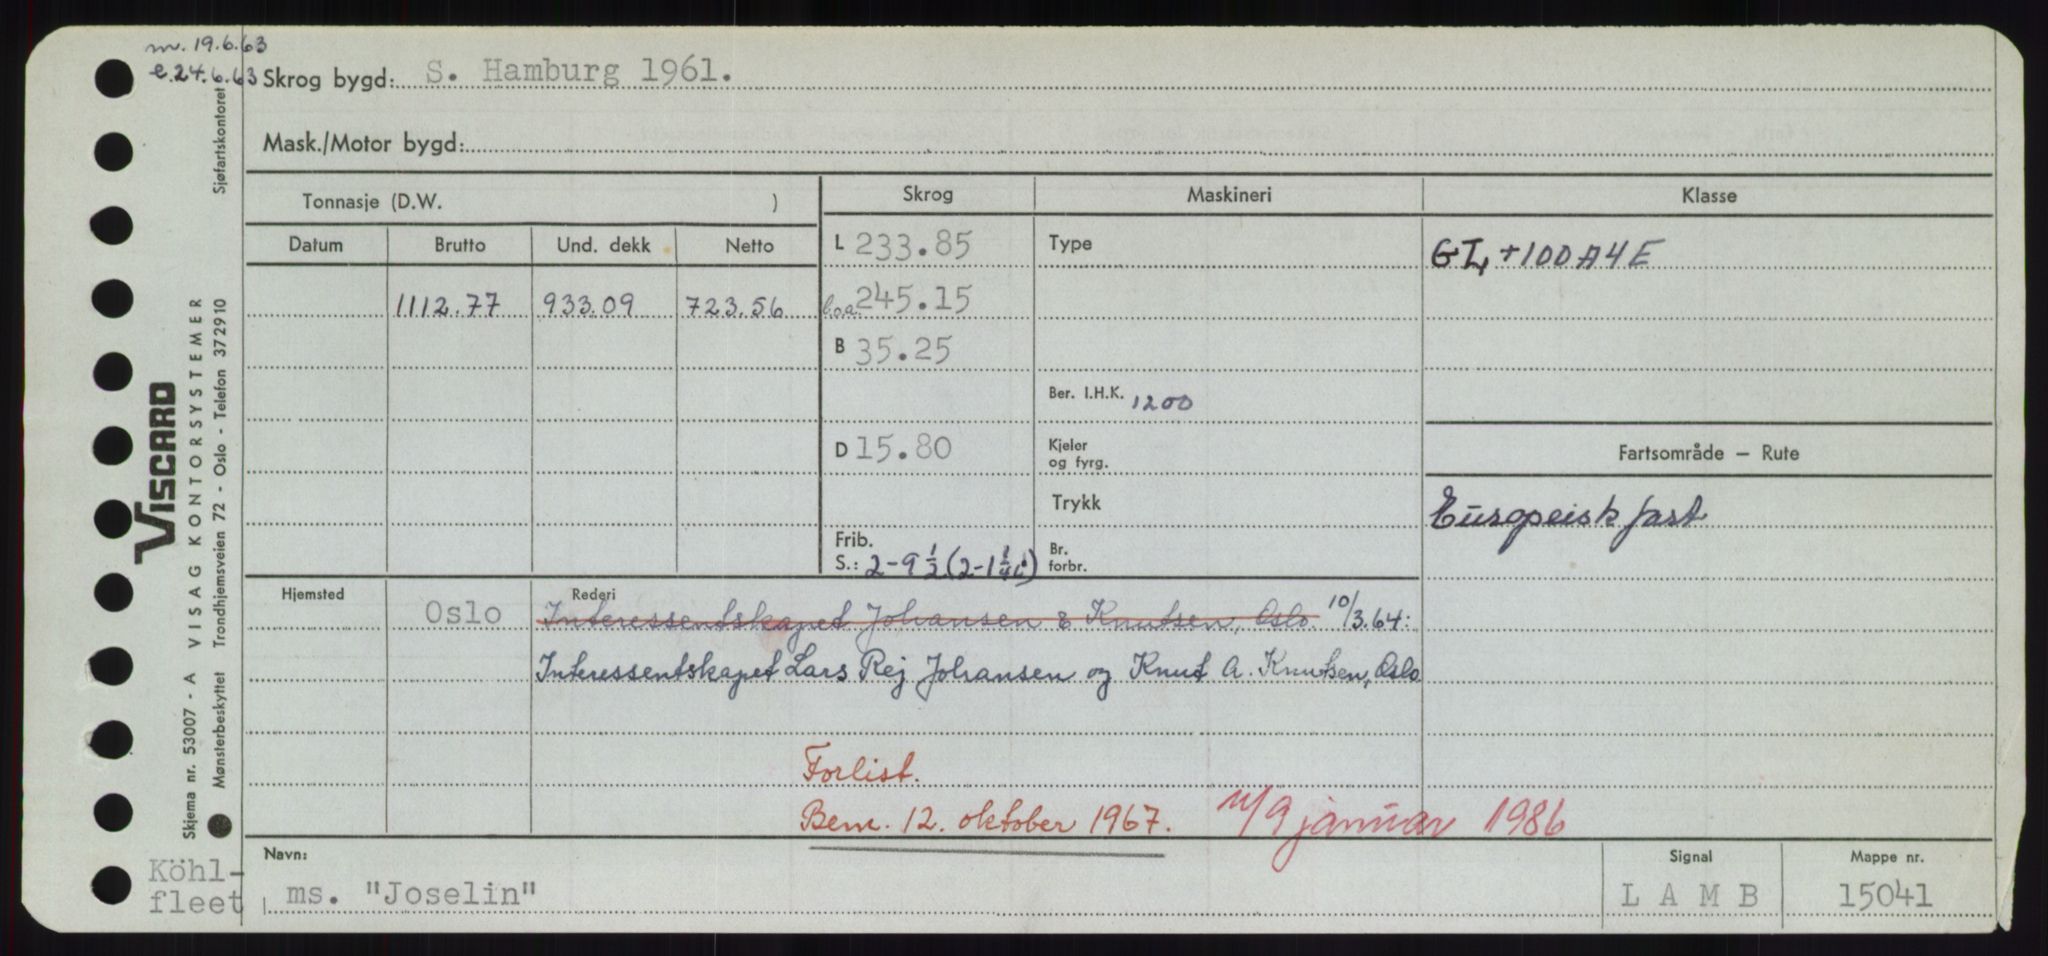 m. 19.6.63
e. 24.6.63 Skrog bygd: S. Hamburg 1961.
Mask./Motor bygd:
Tonnasje (D.W. ) Skrog Maskineri Klasse
Datum Brutto Und. dekk Netto L 233.85 Type GL +100A4E
1112.77 933.09 723.56 l.o.a. 245.15
B 35.25
Ber. I.H.K. 1200
D 15.80 Kjeler og fyrg. Fartsområde – Rute
Trykk Europeisk fart
Frib. S.: 2-9 1/2 (2-1 1/4) Br. forbr.
Hjemsted Oslo Rederi Interessentskapet Johansen & Knutsen, Oslo. 10/3.64:
Interessentskapet Lars Rej Johansen og Knut A. Knutsen, Oslo.
Forlist.
Bem. 12. oktober 1967. 9 januar 1986
Navn: Signal Mappe nr.
Köhl-
fleet ms. "Joselin" LAMB 15041
VISCARD
VISAG KONTORSYSTEMER
Skjema nr. 53007 - A
Mønsterbeskyttet Trondhjemsveien 72 - Oslo - Telefon 372910 Sjøfartskontoret